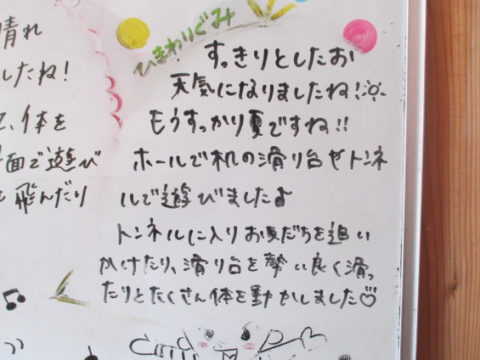 晴れ
したね!
、体を
面で遊び
飛んだり
ひまわりぐみ
すっきりとしたお
天気になりましたね!
もうすっかり夏ですね!!
ホールで机の滑り台やトンネ
ルで遊びました♪
トンネルに入りお友だちを追い
かけたり、滑り台を勢い良く滑っ
たりとたくさん体を動かしました♡